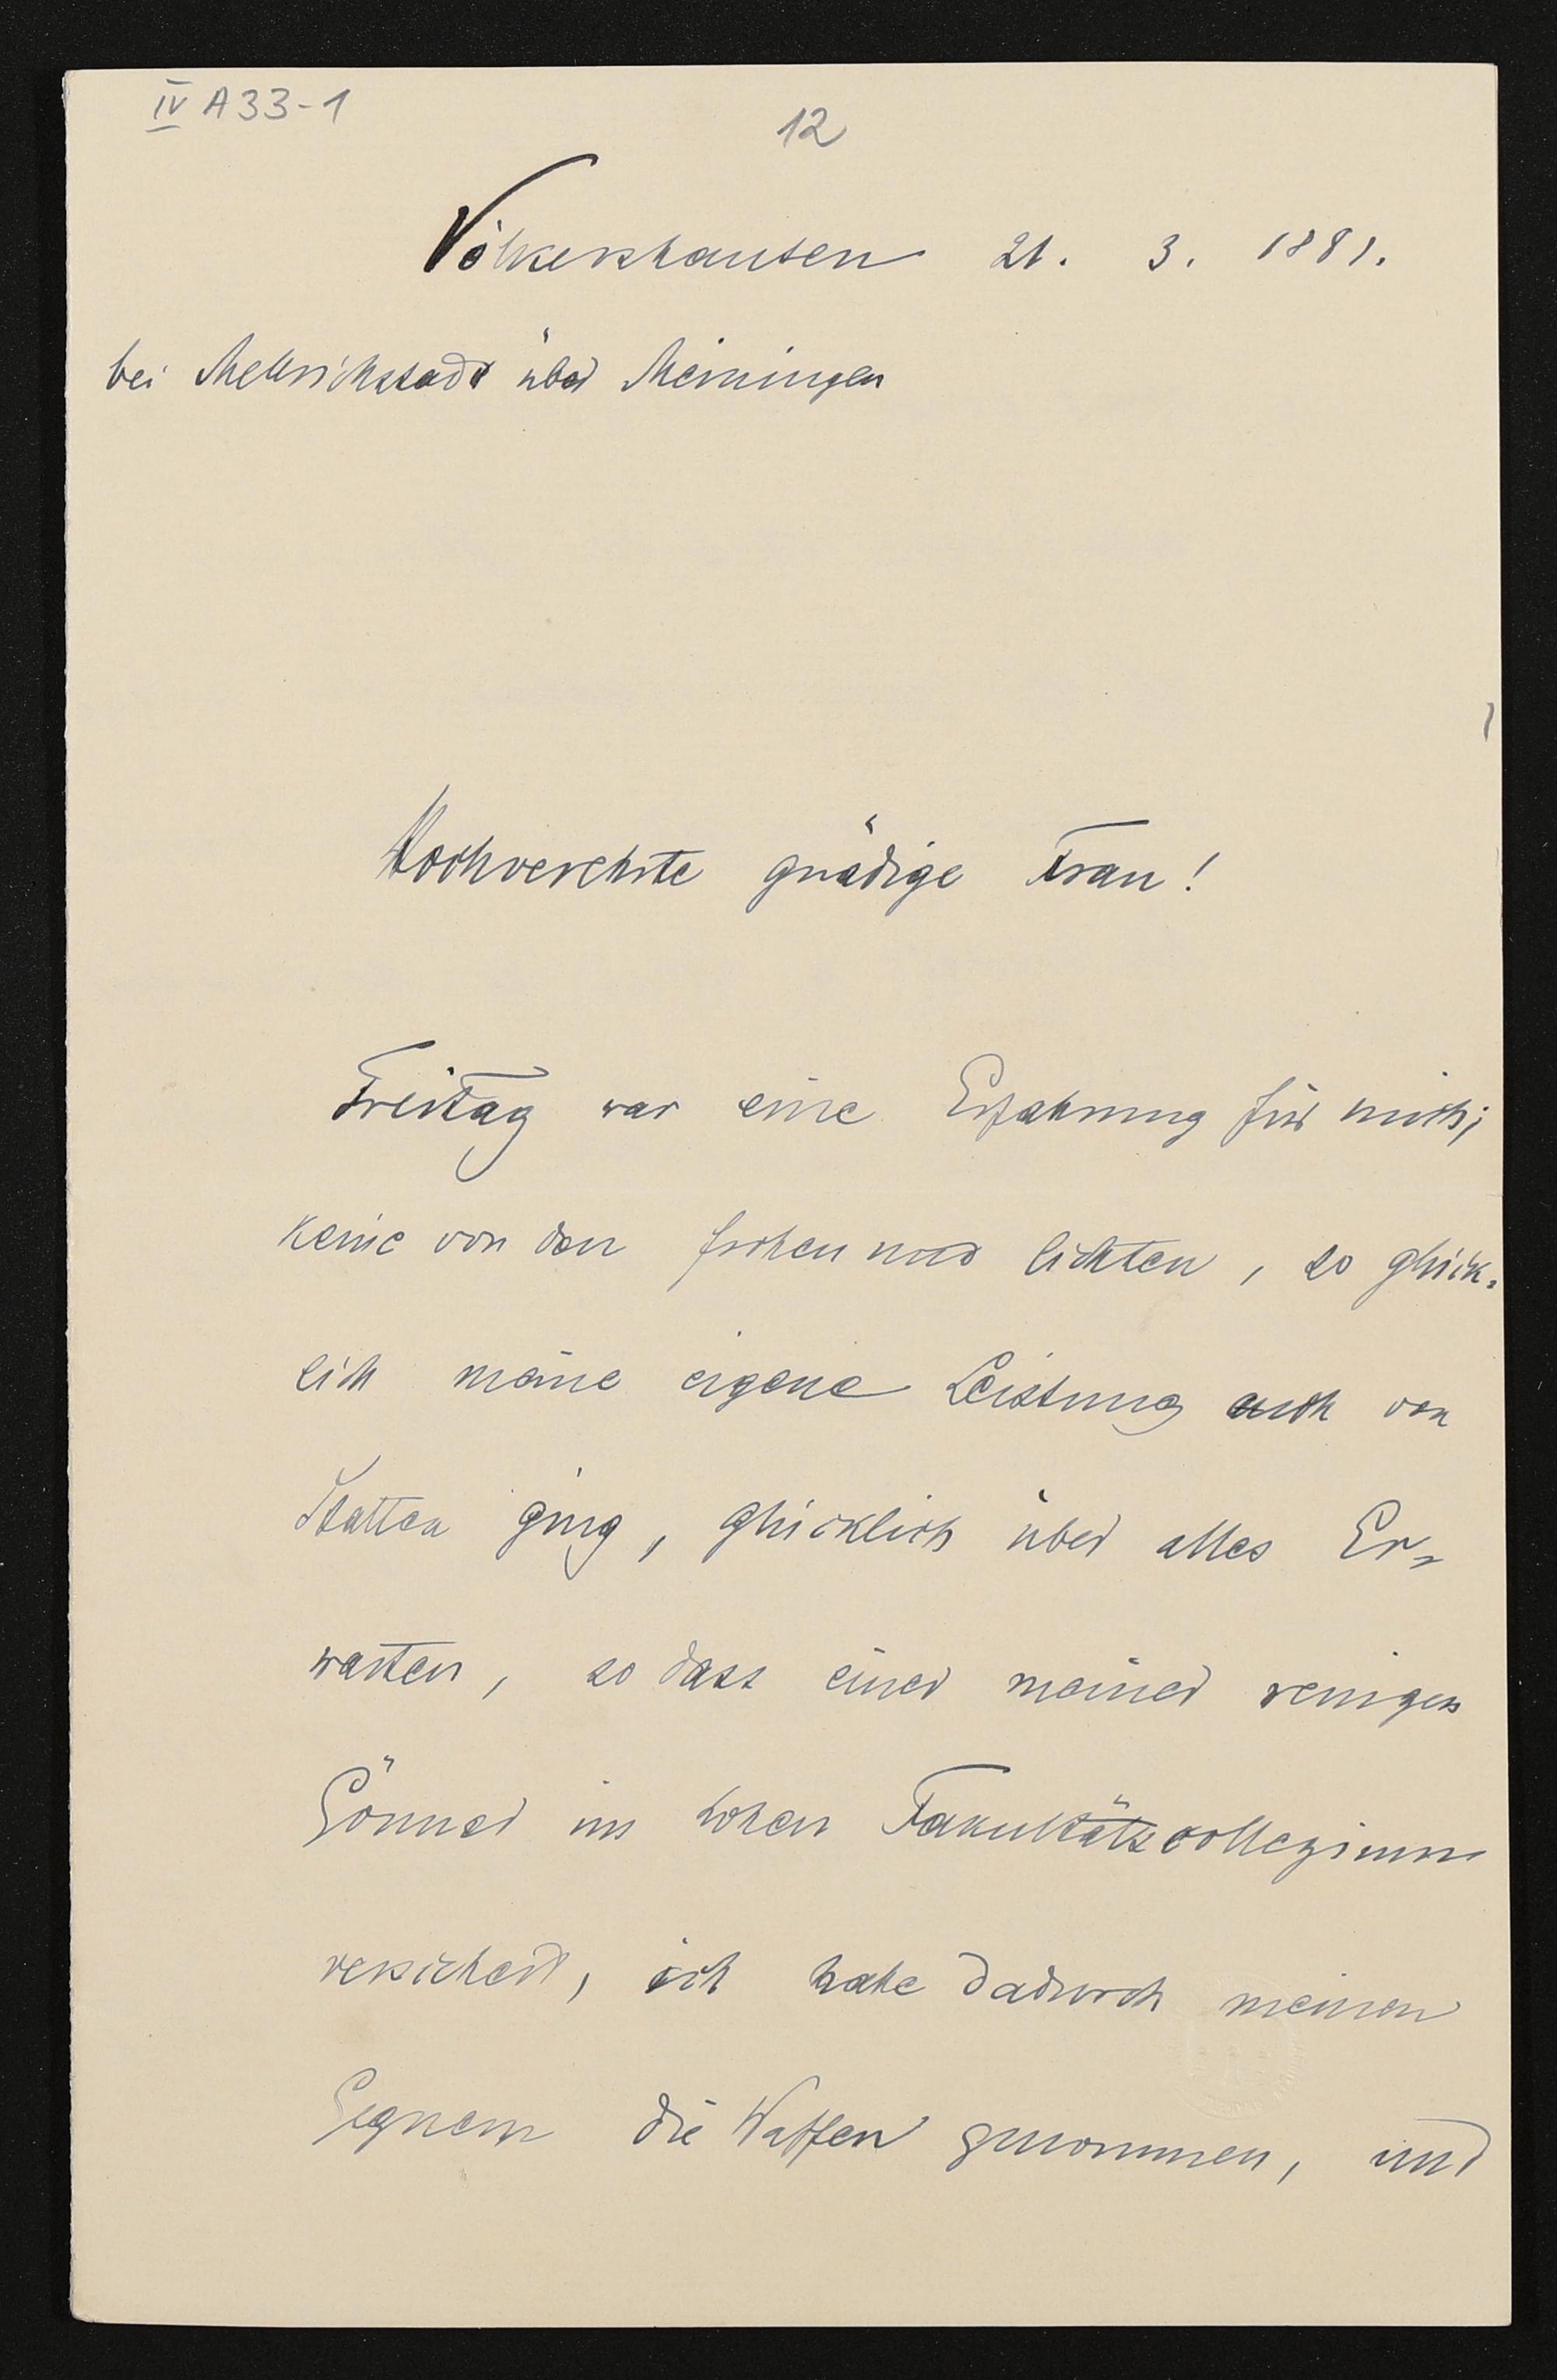 IV A33-1
12
Völkershausen 21. 3. 1881.
bei Mellrichstadt über Meiningen
Hochverehrte gnädige Frau!
Freitag war eine Erfahrung für mich;
keine von den frohen und lichten, so glück-
lich meine eigene Leistung auch von
Statten ging, glücklich über alles Er-
warten, so dass einer meiner wenigen
Gönner im hohen Fakultätscollegium
versichert, ich habe dadurch meinen
Gegnern die Waffen genommen, und